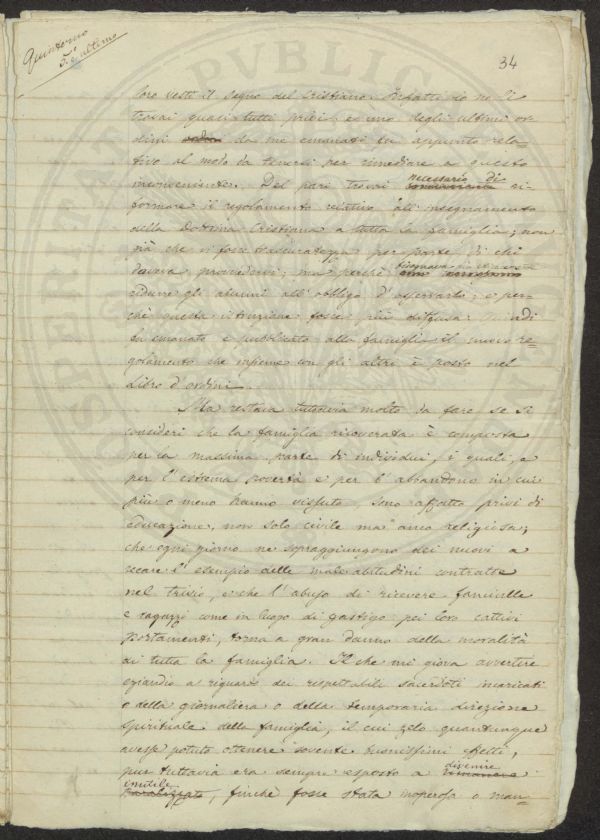 Quinterno
5.° ed ultimo
34
loro vesti il segno del Cristiano. Infatti io ne li
trovai quasi tutti privi, ed uno degli ultimi or-
dini da me emanati fu appunto rela-
tivo al modo da tenersi per rimediare a questo
inconveniente. Del pari trovai necessario di ri-
formare il regolamento relativo all'insegnamento
della Dottrina Cristiana a tutta la famiglia; non
già che vi fosse trascuratezza per parte di chi
doveva provvedervi; ma perchè bisognava
ridurre gli alunni all'obbligo d'osservarlo; e per-
chè questa istruzione fosse più diffusa. Quindi
fu emanato e pubblicato alla famiglia il nuovo re-
golamento che insieme con gli altri è posto nel
Libro d'ordini.
Ma restava tuttavia molto da fare se si
consideri che la famiglia ricoverata è composta
per la massima parte di individui, i quali, e
per l'estrema povertà e per l'abbandono in cui
più o meno hanno vissuto, sono affatto privi di
educazione, non solo civile ma anco religiosa;
che ogni giorno ne sopraggiungono dei nuovi a
recare l'esempio delle male abitudini contratte
nel trivio, e che l'abuso di ricevere fanciulle
e ragazzi come in luogo di gastigo pei loro cattivi
portamenti, torna a gran danno della moralità
di tutta la famiglia. Il che mi giova avvertire
eziandio a riguardo dei rispettabili sacerdoti incaricati
o della giornaliera o della temporaria direzione
spirituale della famiglia, il cui zelo quantunque
avesse potuto ottenere sovente buonissimi effetti,
pur tuttavia era sempre esposto a divenire rimanere
inutile paralizzato, finchè fosse stata inoperosa o man-